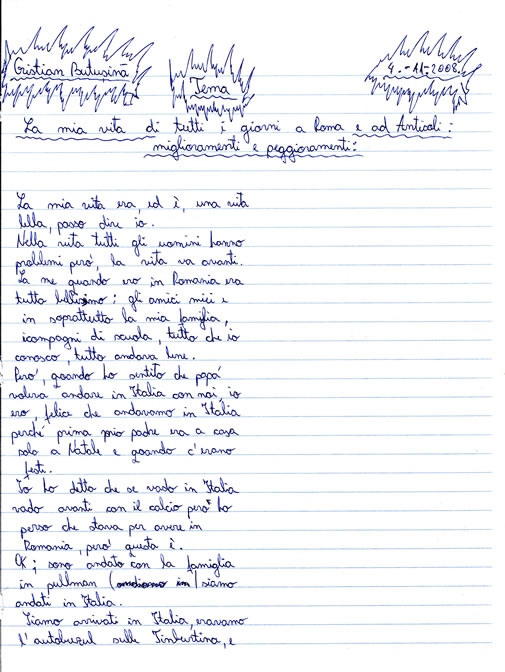 Cristian Butușină
Tema
4.-11-2008.
La mia vita di tutti i giorni a Roma e ad Anticoli:
miglioramenti e peggioramenti:
La mia vita era, ed è, una vita
bella, posso dire io.
Nella vita tutti gli uomini hanno
problemi però, la vita va avanti.
La me quando ero in Romania era
tutto bellisimo: gli amici miei e
in soprattutto la mia famiglia,
icompagni di scuola, tutto che io
conosco, tutto andava bene.
Però, quando ho sentito che papà
voleva andare in Italia con noi, io
ero, felice che andavamo in Italia
perché prima mio padre era a casa
solo a Natale e quando c'erano
festi.
Io ho detto che se vado in Italia
vado avanti con il calcio però ho
perso che stava per avere in
Romania, però questa è.
OK; sono andato con la famiglia
in pullman (andiamo in) siamo
andati in Italia.
Siamo arrivati in Italia, eravamo
l'autobuzul sulla Tinburtina, e